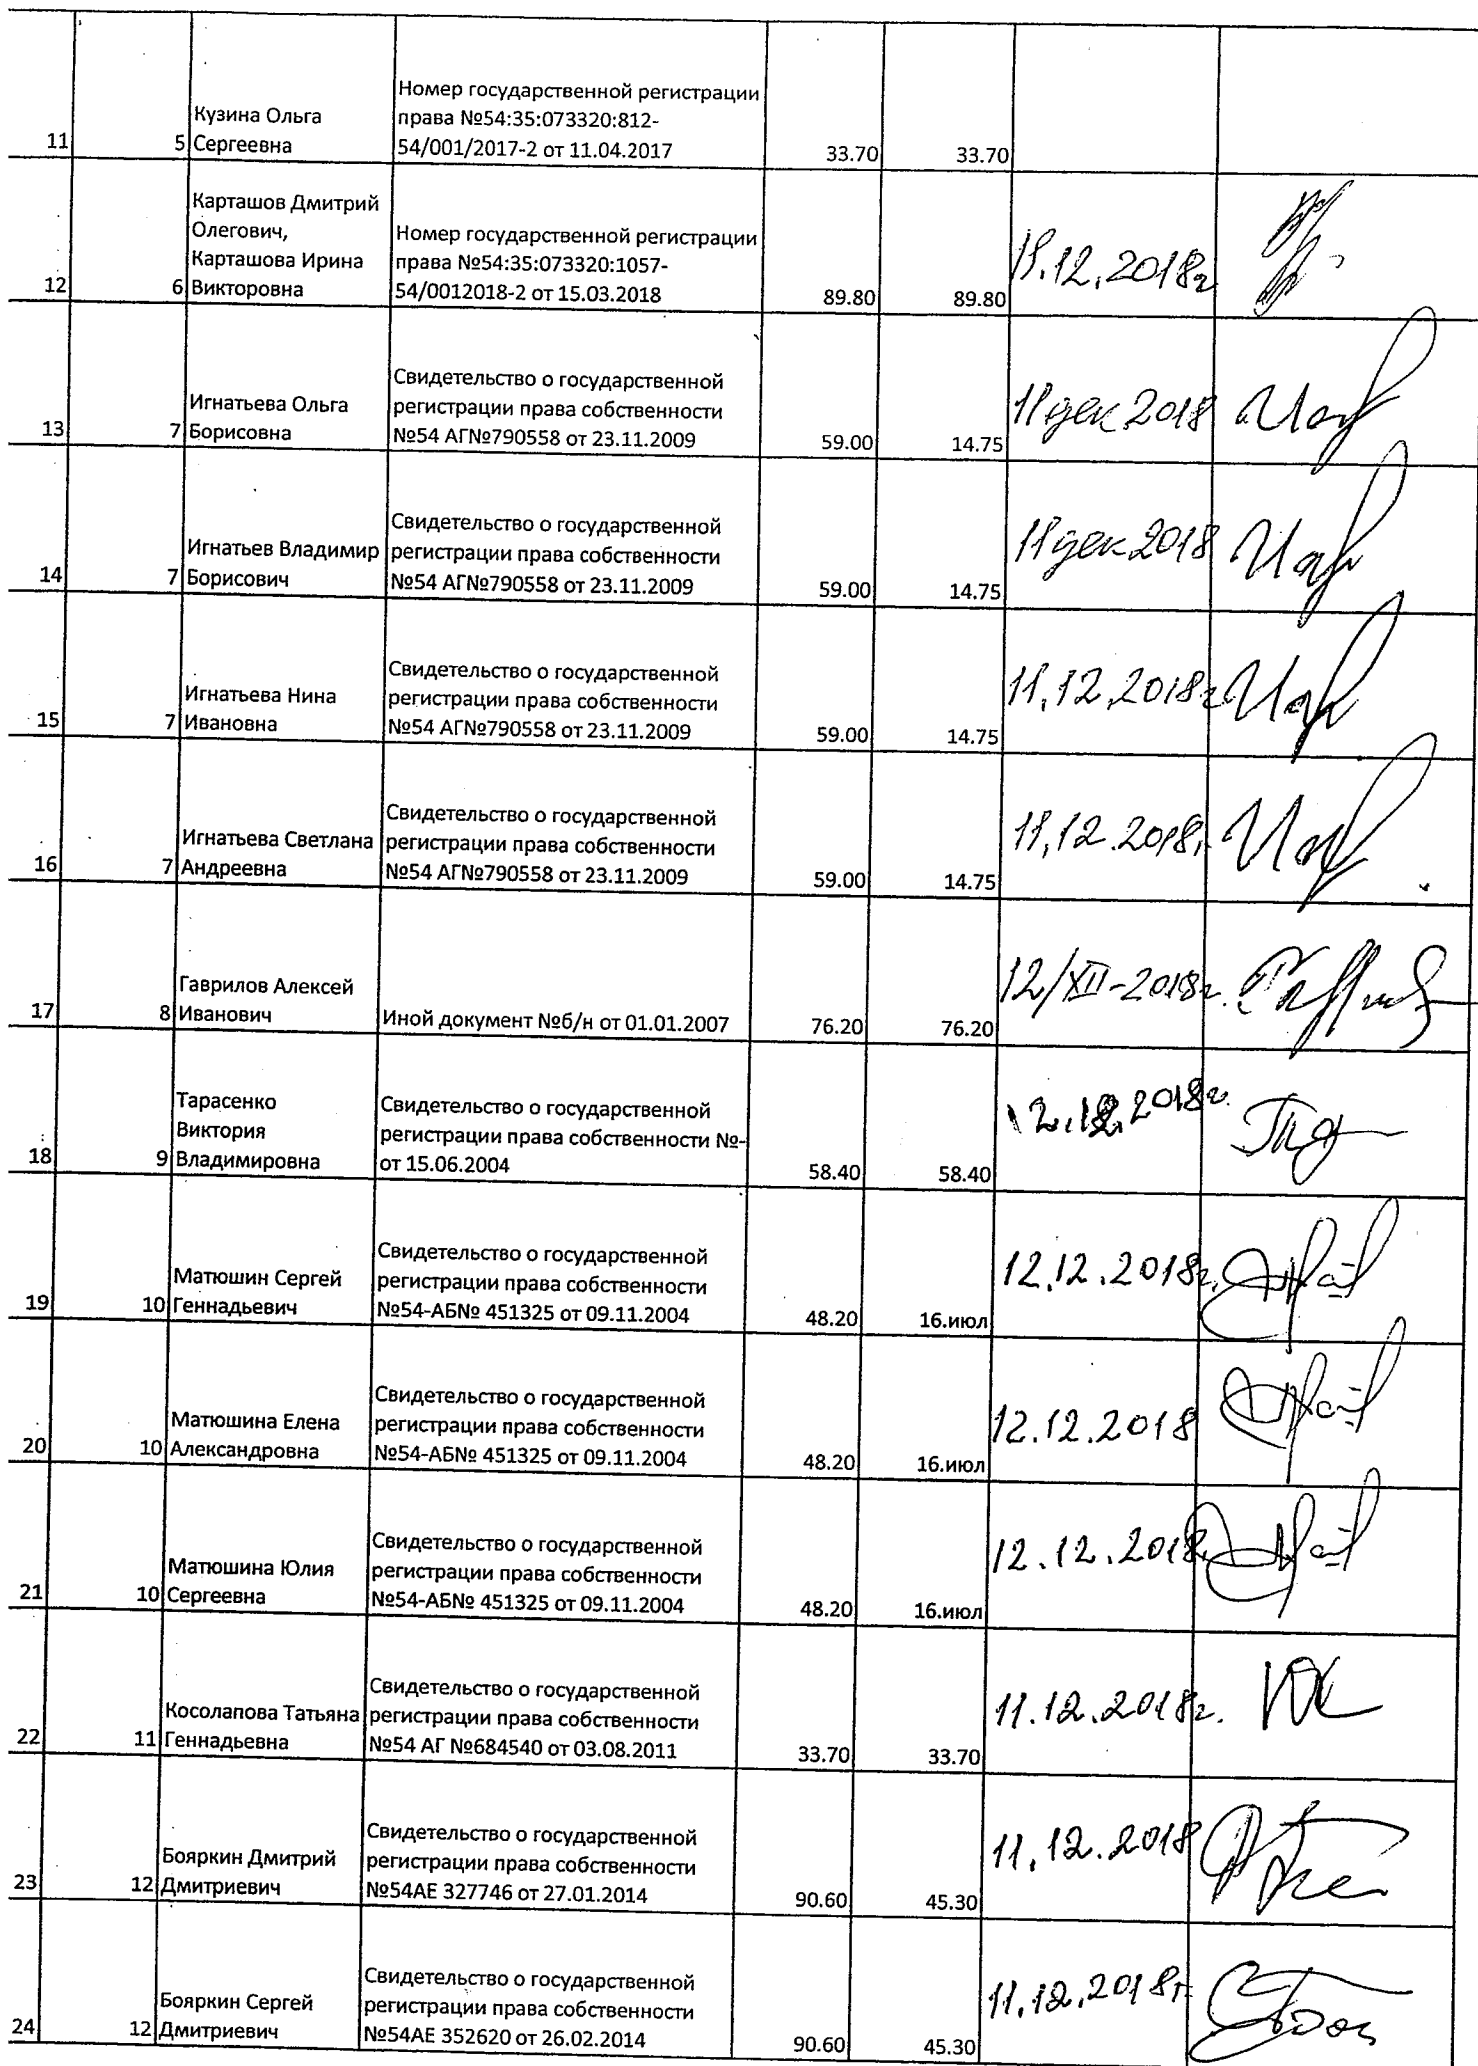 11 5 Кузина Ольга
Сергеевна
Номер государственной регистрации
права №54:35:073320:812-
54/001/2017-2 от 11.04.2017
33.70 33.70
12 6 Карташов Дмитрий
Олегович,
Карташова Ирина
Викторовна
Номер государственной регистрации
права №54:35:073320:1057-
54/0012018-2 от 15.03.2018
89.80 89.80 .12.2018г
13 7 Игнатьева Ольга
Борисовна
Свидетельство о государственной
регистрации права собственности
№54 АГ№790558 от 23.11.2009
59.00 14.75 11 дек 2018
14 7 Игнатьев Владимир
Борисович
Свидетельство о государственной
регистрации права собственности
№54 АГ№790558 от 23.11.2009
59.00 14.75 11 дек 2018
15 7 Игнатьева Нина
Ивановна
Свидетельство о государственной
регистрации права собственности
№54 АГ№790558 от 23.11.2009
59.00 14.75 11.12.2018г
16 7 Игнатьева Светлана
Андреевна
Свидетельство о государственной
регистрации права собственности
№54 АГ№790558 от 23.11.2009
59.00 14.75 11.12.2018г
17 8 Гаврилов Алексей
Иванович
Иной документ №б/н от 01.01.2007
76.20 76.20 12/XII-2018г.
18 9 Тарасенко
Виктория
Владимировна
Свидетельство о государственной
регистрации права собственности №-
от 15.06.2004
58.40 58.40 12.12.2018г.
19 10 Матюшин Сергей
Геннадьевич
Свидетельство о государственной
регистрации права собственности
№54-АБ№ 451325 от 09.11.2004
48.20 16.июл 12.12.2018г.
20 10 Матюшина Елена
Александровна
Свидетельство о государственной
регистрации права собственности
№54-АБ№ 451325 от 09.11.2004
48.20 16.июл 12.12.2018
21 10 Матюшина Юлия
Сергеевна
Свидетельство о государственной
регистрации права собственности
№54-АБ№ 451325 от 09.11.2004
48.20 16.июл 12.12.2018
22 11 Косолапова Татьяна
Геннадьевна
Свидетельство о государственной
регистрации права собственности
№54 АГ №684540 от 03.08.2011
33.70 33.70 11.12.2018г.
23 12 Бояркин Дмитрий
Дмитриевич
Свидетельство о государственной
регистрации права собственности
№54АЕ 327746 от 27.01.2014
90.60 45.30 11.12.2018
24 12 Бояркин Сергей
Дмитриевич
Свидетельство о государственной
регистрации права собственности
№54АЕ 352620 от 26.02.2014
90.60 45.30 11.12.2018г